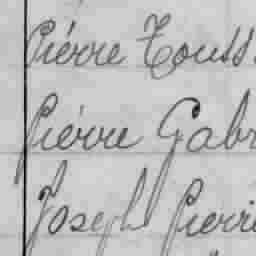 Piérre Touss
Piérre Gabr
Joseph Pierre